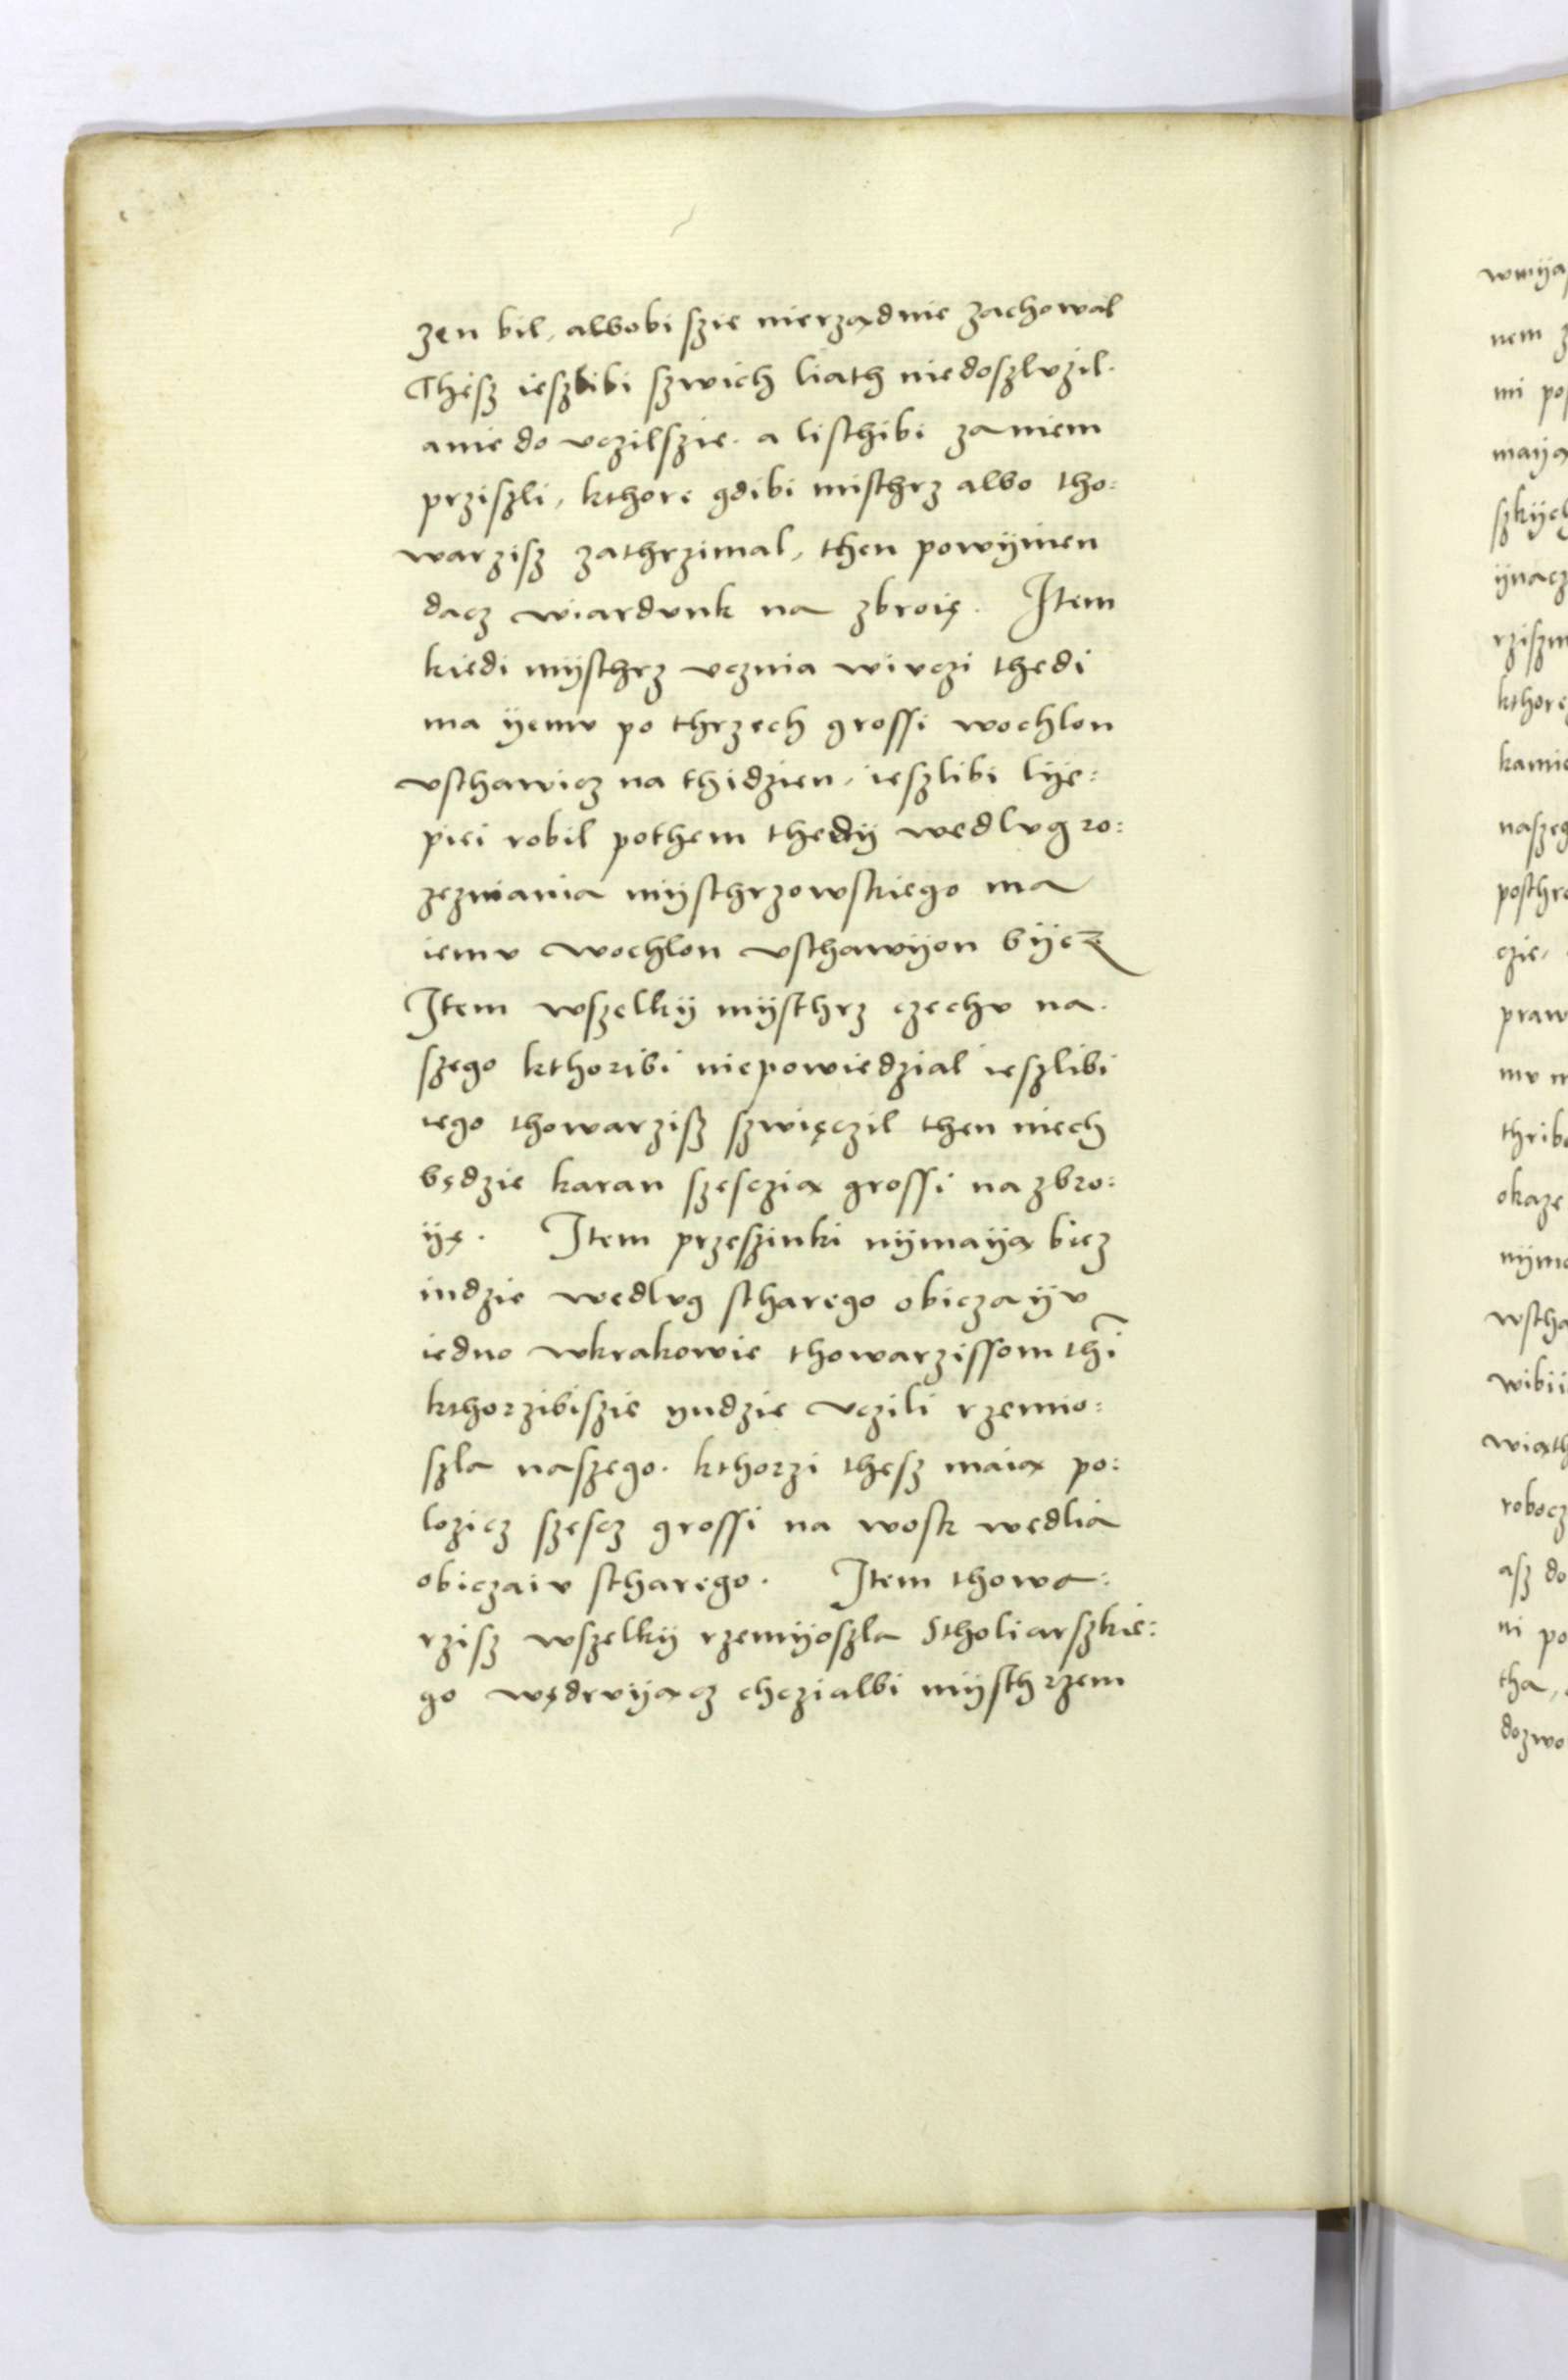 zen bil, albobi szie nierządnie zachowal
Thesz ieszlibi szwich liath niedoszlvzil.
anie do vczilszie. a listhibi zaniem
prziszli, kthore gdibi misthrz albo tho:
warzisz zathrzimal, then powÿnien
dacz wiardvnk na zbroię. Item
kiedi mÿsthrz vcznia wivczi thedi
ma ÿemv po thrzech grossi wochlon
vsthawicz na thidzien, ieszlibi lÿe:
piei robil pothem thedÿ wedlvg ro:
zeznania mÿsthrzowskiego ma
iemv wochlon vsthawÿon bÿcz
Item wszelkÿ mÿsthrz czechv na.
szego kthoribi niepowiedzial ieszlibi
iego thowarzisz szwięczil then niech
będzie karan szesczią grossi na zbro:
ÿę. Item przeszinki nÿmaÿą bicz
indzie wedlvg stharego obiczaÿv
iedno wkrakowie thowarzissom thi
kthorzibiszie yndzie vczili rzemio:
szla naszego. kthorzi thesz maią po:
lozicz szescz grossi na wosk wedlia
obiczaiv stharego. Item thowa:
rzisz wszelkÿ rzemÿoszla Stholiarszkie:
go wędrvÿącz chczialbi mÿsthrzem